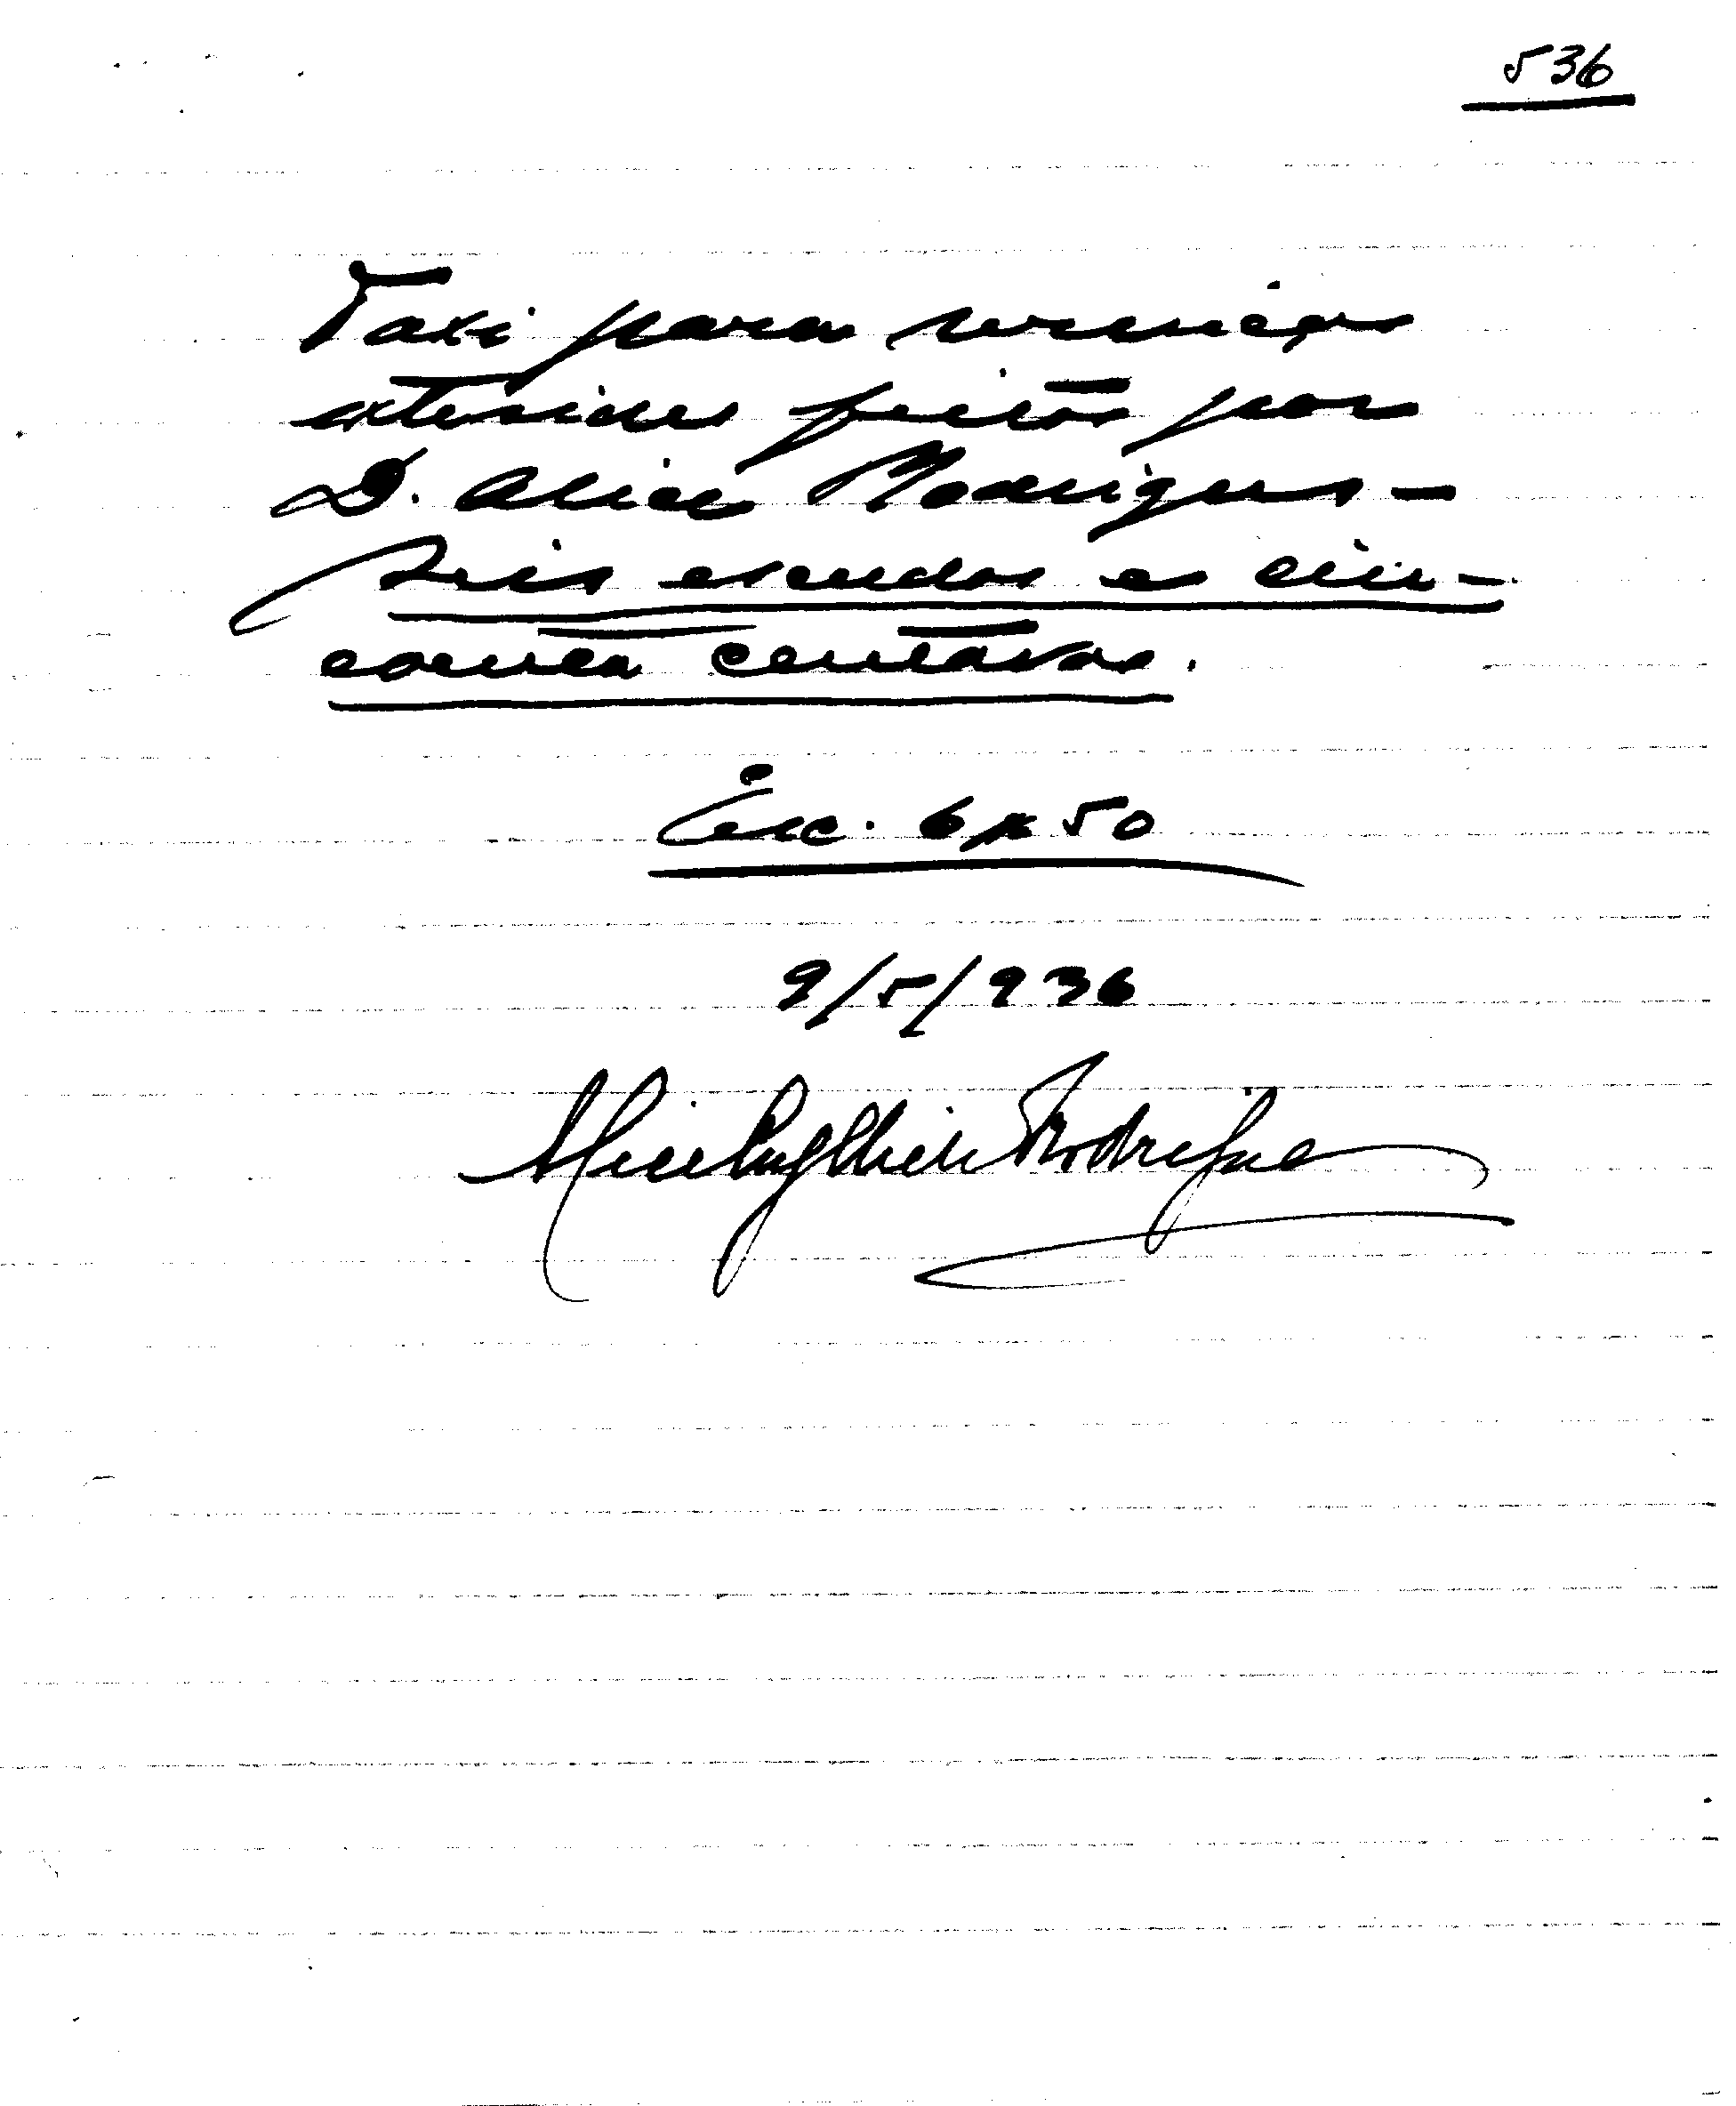 536
Taxi para serviços
exteriores feitos por
D. Alice Rodrigues -
seis escudos e cin-
coenta centavos.
Esc. 6$50
9/5/936
Alice Rodrigues